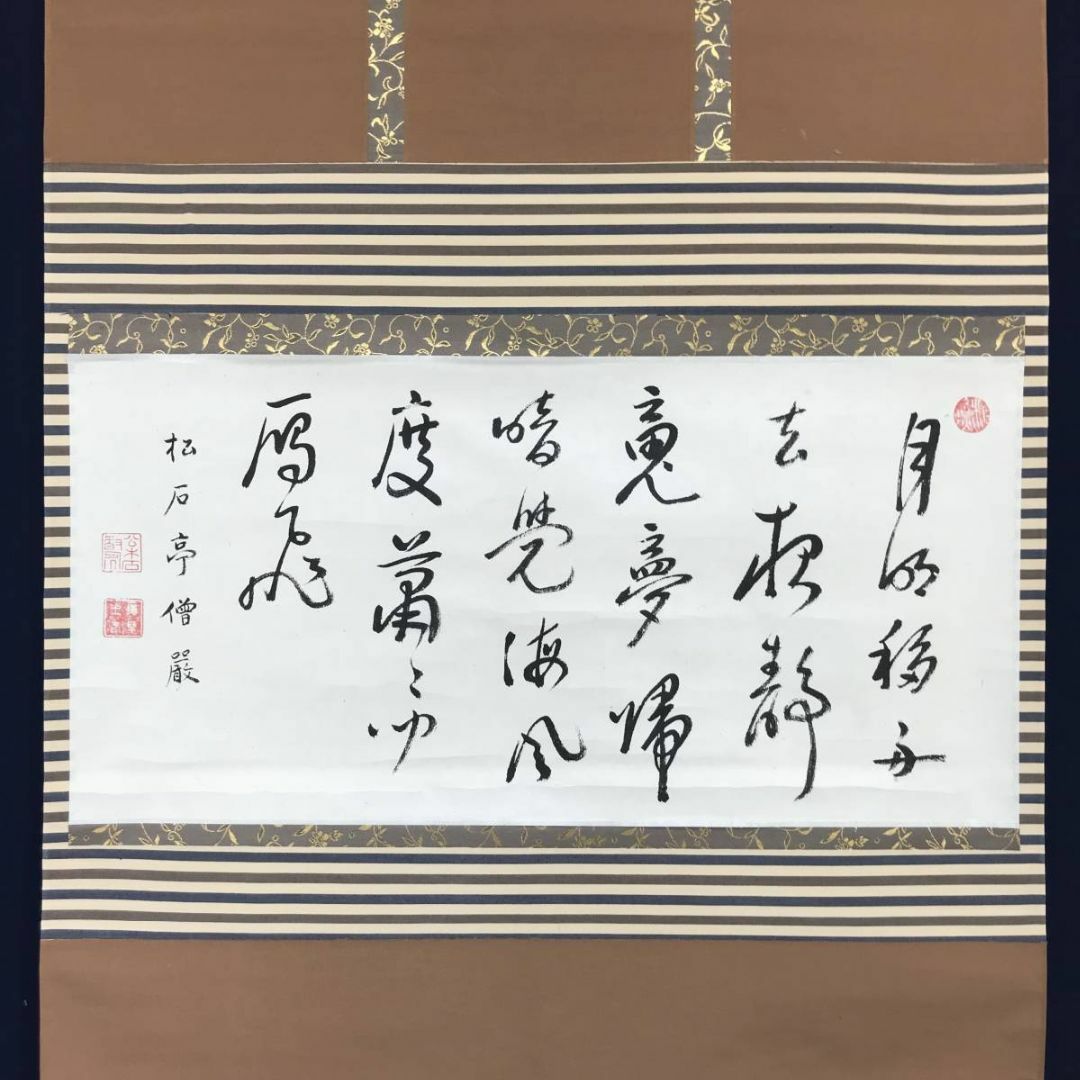 月明移舟
去夜静
魂夢歸
暗覺海風
度蕭々聞
鴈飛
松石亭僧嚴